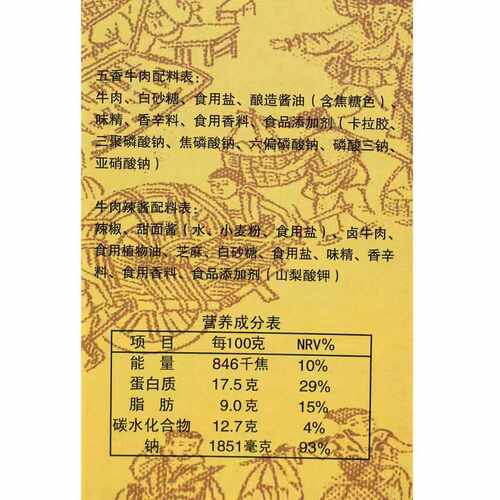 五香牛肉配料表:
牛肉、白砂糖、食用盐、酿造酱油(含焦糖色)、
味精、香辛料、食用香料、食品添加剂(卡拉胶、
三聚磷酸钠、焦磷酸钠、六偏磷酸钠、磷酸三钠、
亚硝酸钠)
牛肉辣酱配料表:
辣椒、甜面酱(水、小麦粉、食用盐)、卤牛肉、
食用植物油、芝麻、白砂糖、食用盐、味精、香辛
料、食用香料、食品添加剂(山梨酸钾)
营养成分表
项 目 每100克 NRV%
能 量 846千焦 10%
蛋白质 17.5克 29%
脂 肪 9.0克 15%
碳水化合物 12.7克 4%
钠 1851毫克 93%